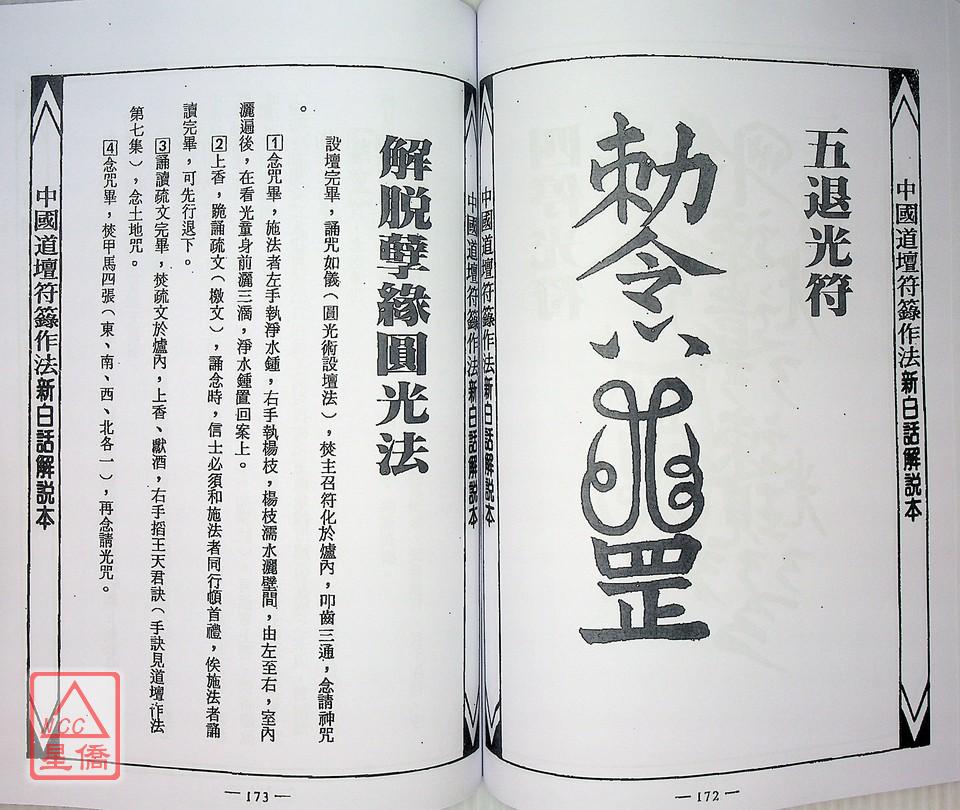 中國道壇符籙作法新白話解說本
五退光符
勅令
罡
中國道壇符籙作法新白話解說本
—172—
中國道壇符籙作法新白話解說本
解脫孽緣圓光法
設壇完畢，誦咒如儀（圓光術設壇法），焚主召符化於爐內，叩齒三通，念請神咒
。
1念咒畢，施法者左手執淨水鍾，右手執楊枝，楊枝濡水灑壁間，由左至右，室內
灑遍後，在看光童身前灑三滴，淨水鍾置回案上。
2上香，跪誦疏文（檄文），誦念時，信士必須和施法者同行頓首禮，俟施法者誦
讀完畢，可先行退下。
3誦讀疏文完畢，焚疏文於爐內，上香、獻酒，右手搯王天君訣（手訣見道壇作法
第七集），念土地咒。
4念咒畢，焚甲馬四張（東、南、西、北各一），再念請光咒。
中國道壇符籙作法新白話解說本
—173—
NCC
星僑